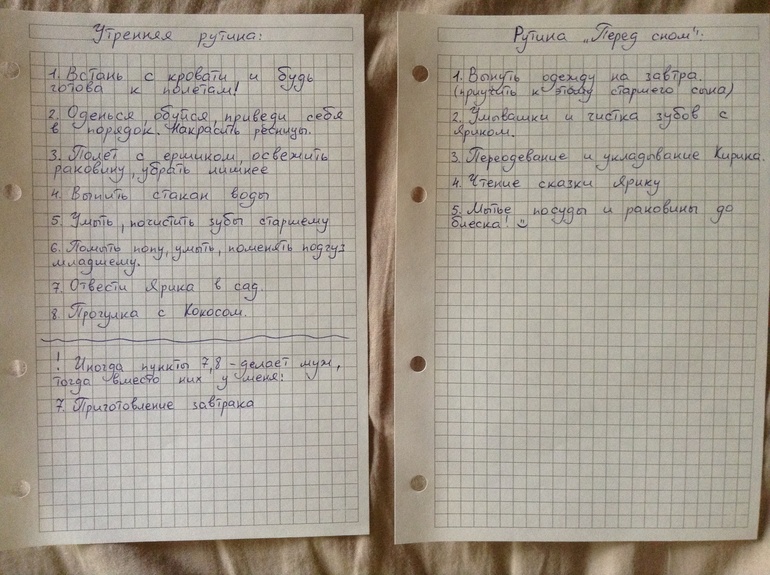 Утренняя рутина:
1. Встань с кровати и будь
готова к полетам!
2. Оденься, обуйся, приведи себя
в порядок. Накрасить ресницы.
3. Полет с ершиком, освежить
раковину, убрать лишнее
4. Выпить стакан воды
5. Умыть, почистить зубы старшему
6. Помыть попу, умыть, поменять подгуз
младшему.
7. Отвести Ярика в сад.
8. Прогулка с Кокосом.
! Иногда пункты 7,8 - делает муж,
тогда вместо них у меня:
7. Приготовление завтрака
Рутина „Перед сном":
1. Вынуть одежду на завтра.
(приучить к этому старшего сына)
2. Умывашки и чистка зубов с
Яриком.
3. Переодевание и укладывание Кирика.
4. Чтение сказки Ярику
5. Мытье посуды и раковины до
блеска! :)